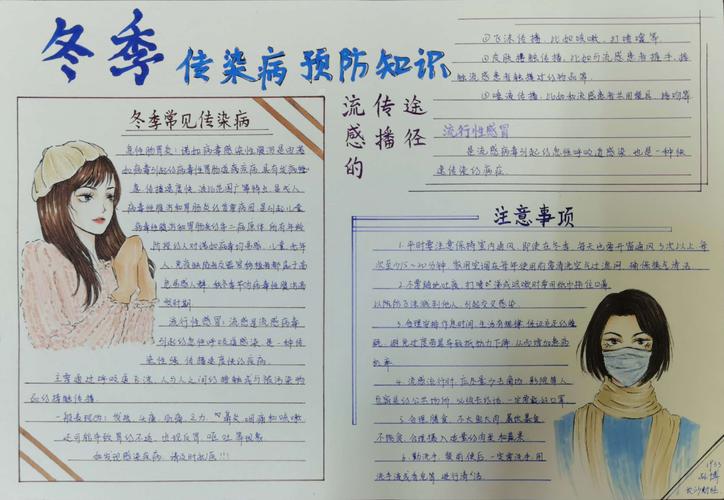 冬季传染病预防知识
冬季常见传染病
急性肠胃炎：诺如病毒感染性腹泻是由诺
如病毒引起的病毒性胃肠道疾病，具有发病
急、传播速度快、波及范围广等特点，是成人
病毒性腹泻和胃肠炎的首要病因，是引起儿童
病毒性腹泻和胃肠炎的第二病原体，所有年龄
阶段的人对诺如病毒均易感，儿童、老年
人
高易感人群，秋冬季节为病毒性腹泻高
发时期
流行性感冒：流感是流感病毒
引起的急性呼吸道感染，是一种传
染性强、传播速度快的疾病
主要通过呼吸道飞沫、人与人之间的接触或与被污染物
品的接触传播
一般表现为：发热、头痛、肌痛、乏力、鼻炎、咽痛和咳嗽
还可能会有胃肠不适，出现反胃、呕吐等现象
如发现感染疾病，请及时就医!!!
流感的
传播
途径
①飞沫传播，比如咳嗽，打喷嚏等
②皮肤接触传播，比如与流感患者握手，接
触流感患者触摸过的物品等
③唾液传播，比如和流感患者共用餐具，接吻等
流行性感冒
是流感病毒引起的急性呼吸道感染，也是一种快
速传染的疾病
注意事项
1.平时要注意保持室内通风，即使在冬季，每天也需开窗通风3次以上，每
次至少15~20分钟，家用空调在每年使用前需清洗空气过滤网，确保换气清洁
2.不要随地吐痰，打喷嚏或咳嗽时要用纸巾捂住口鼻
以防飞沫溅到他人，引起交叉感染
3.合理安排作息时间，生活有规律，保证充足的睡
眠，避免过度劳累导致抵抗力下降，从而增加患病
机率
4.流感流行时，应尽量少去商场、影院等人
员密集的公共场所，必须去的话，一定要戴好口罩
5.合理膳食，不大鱼大肉、暴饮暴食
不偏食，合理摄入适量的肉类和蔬菜
6.勤洗手，餐前便后，一定要洗手，用
洗手液或者皂等进行清洁
1933
长沙财经